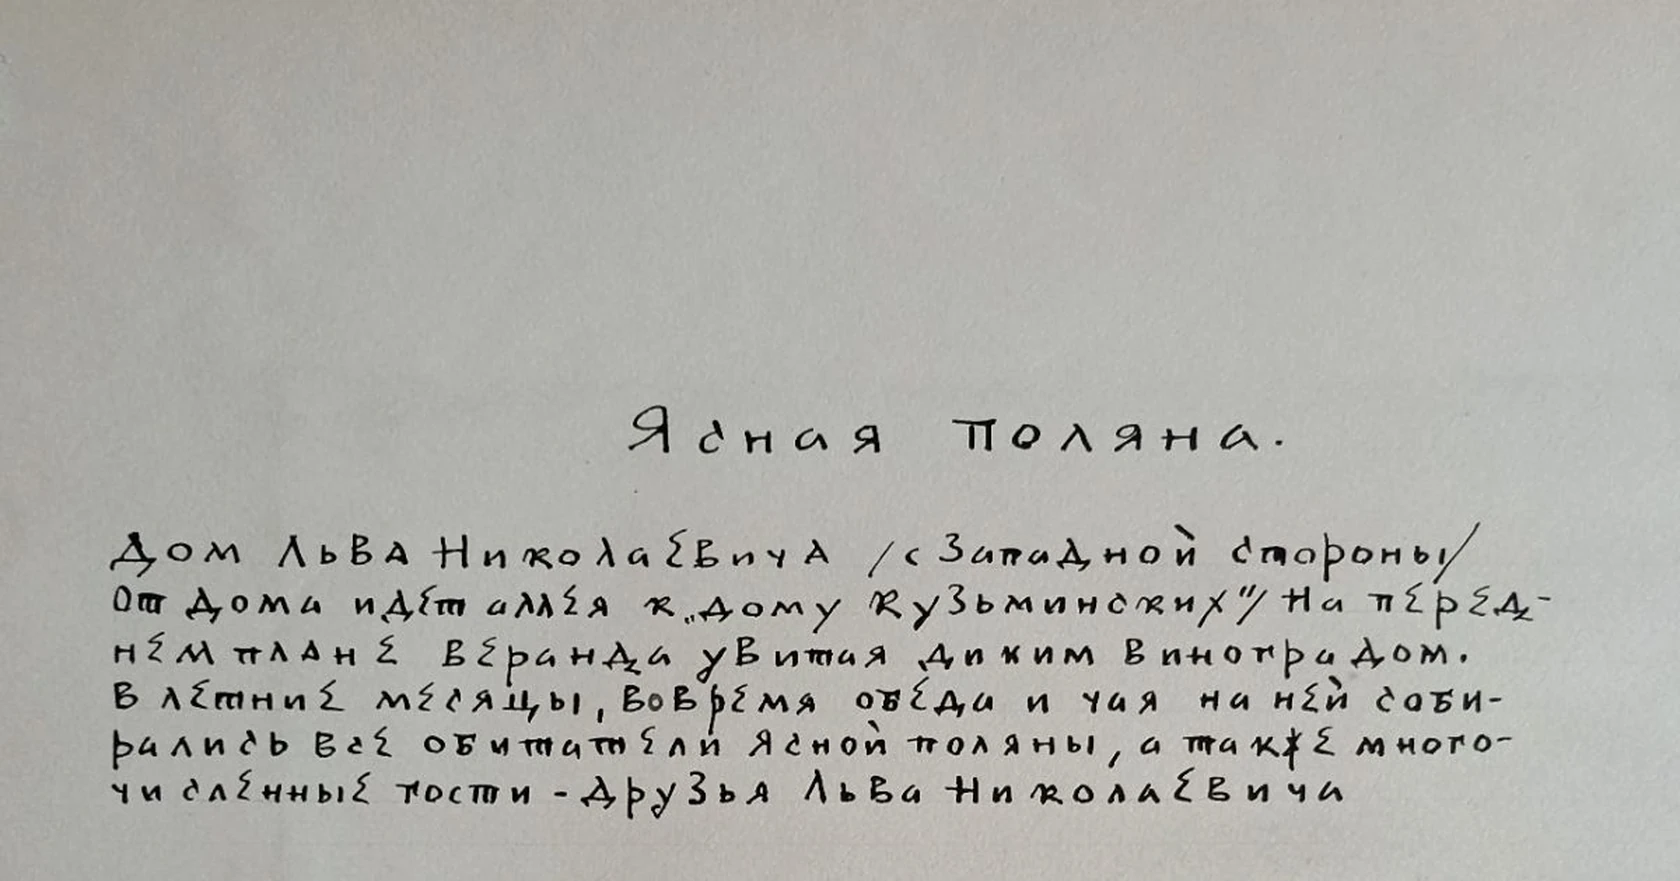 Ясная поляна.
Дом Льва Николаевича /с Западной стороны/
От дома идет аллея к „дому Кузьминских"/ На перед-
нем плане веранда увитая диким виноградом.
В летние месяцы, вовремя обеда и чая на ней соби-
рались все обитатели Ясной поляны, а также много-
численные гости - друзья Льва Николаевича